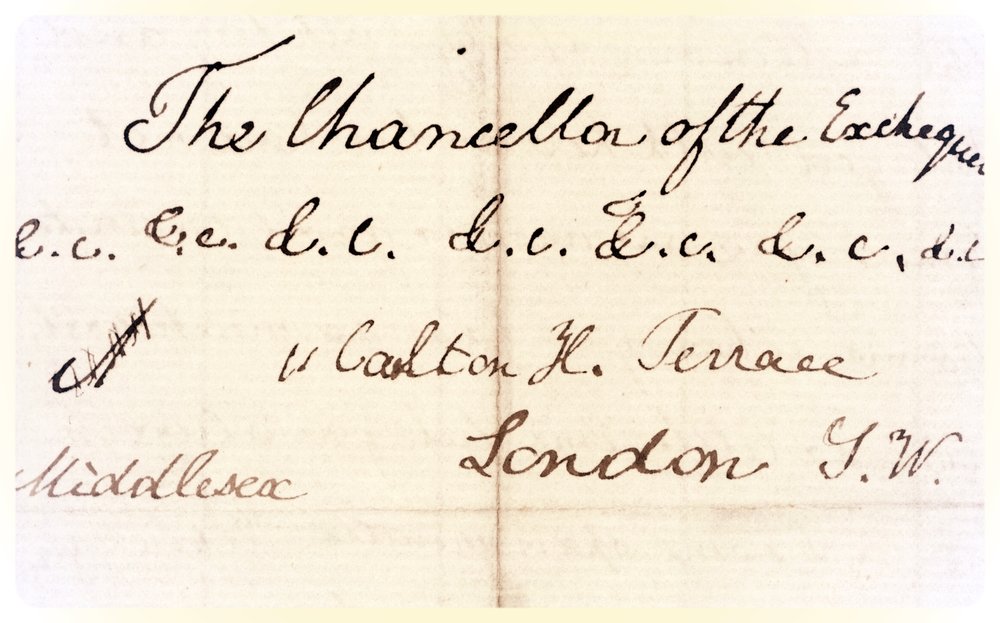 The Chancellor of the Exchequer
&.c. &.c. &.c. &.c. &.c. &.c. &.c
11 Carlton H. Terrace
London S.W.
Middlesex